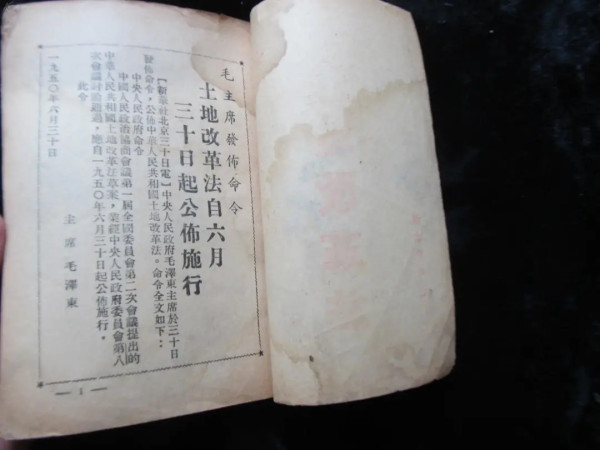 毛主席發佈命令
土地改革法自六月
三十日起公佈施行
【新華社北京三十日電】中央人民政府毛澤東主席於三十日
發佈命令，公佈中華人民共和國土地改革法。命令全文如下：
中央人民政府命令
中國人民政治協商會議第一屆全國委員會第二次會議提出的
中華人民共和國土地改革法草案，業經中央人民政府委員會第八
次會議討論通過，應自一九五〇年六月三十日起公佈施行。
此令
主席毛澤東
一九五〇年六月三十日
— 1 —